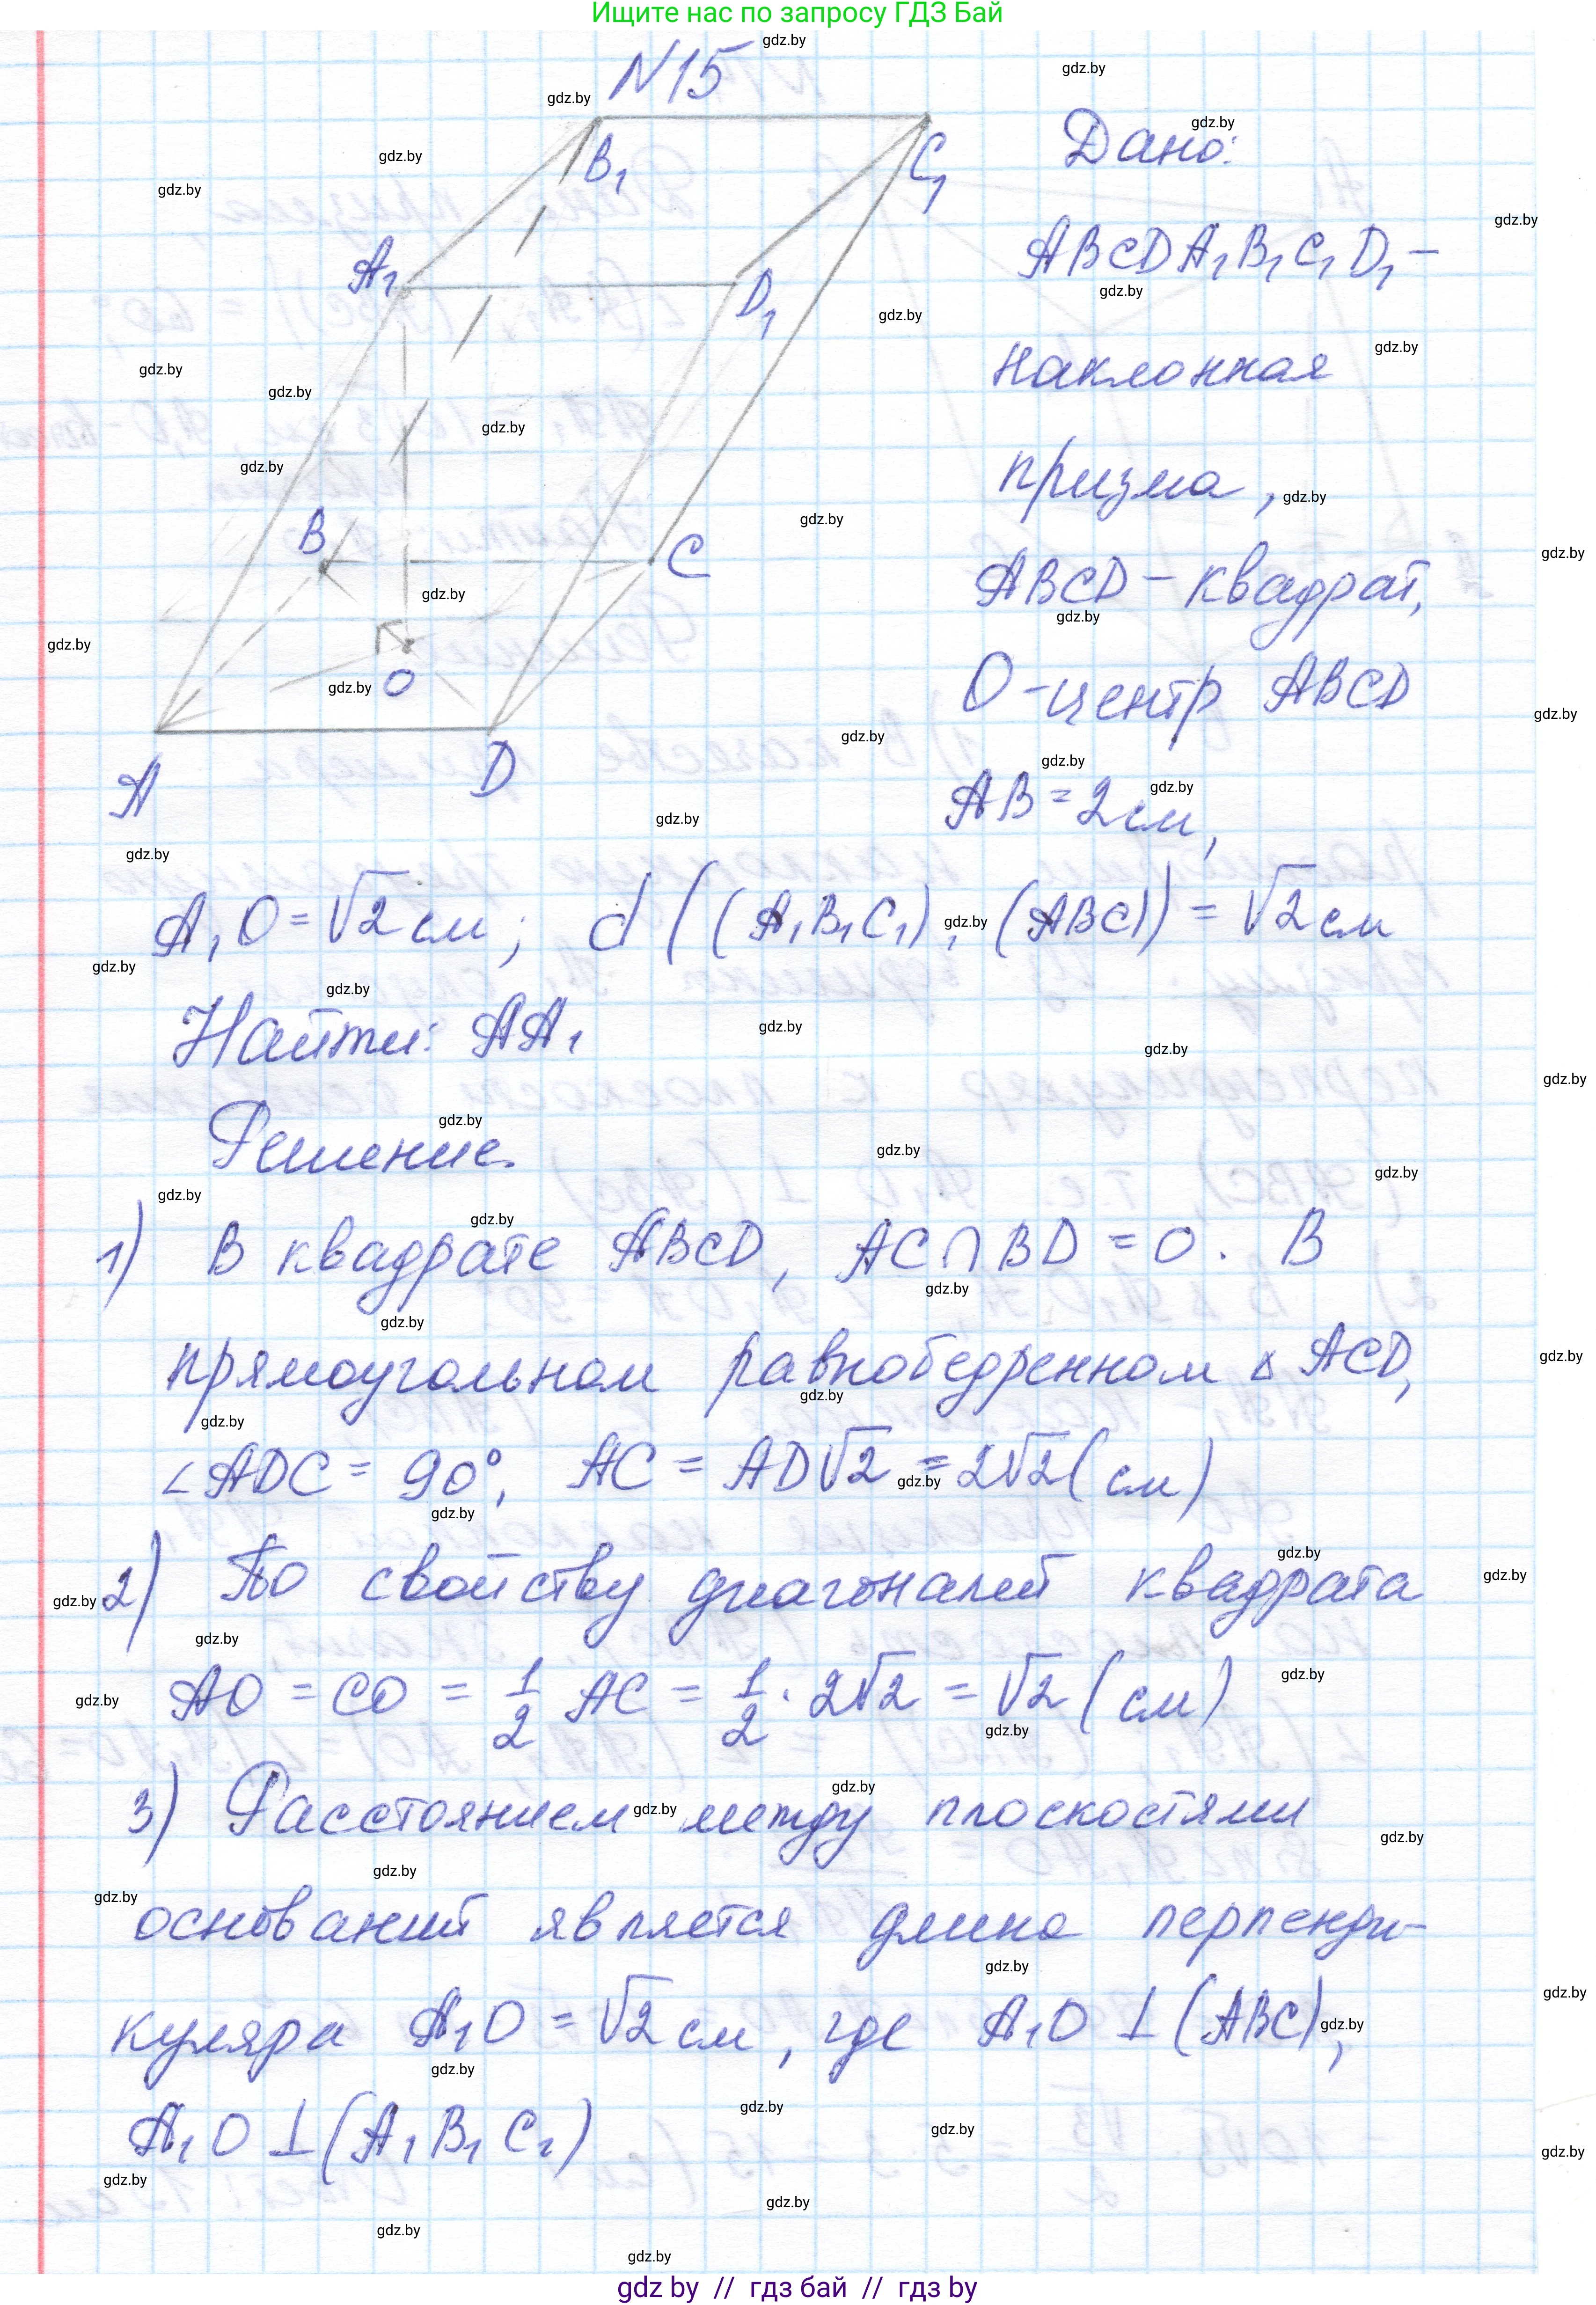 Ищите нас по запросу ГДЗ Бай
N15
B₁
C₁
A₁
D₁
B
C
O
A
D
Дано:
ABCDA₁B₁C₁D₁ –
наклонная
призма,
ABCD – квадрат,
O – центр ABCD
AB = 2 см,
A₁O = √2 см; d((A₁B₁C₁), (ABC)) = √2 см
Найти: AA₁
Решение.
1) В квадрате ABCD, AC∩BD = O. В
прямоугольном равнобедренном △ ACD,
∠ADC = 90°, AC = AD√2 = 2√2 (см)
2) По свойству диагоналей квадрата
AO = CO = 1/2 AC = 1/2 · 2√2 = √2 (см)
3) Расстоянием между плоскостями
оснований является длина перпенди-
куляра A₁O = √2 см, где A₁O ⊥ (ABC),
A₁O ⊥ (A₁B₁C₁)
gdz by // гдз бай // гдз by